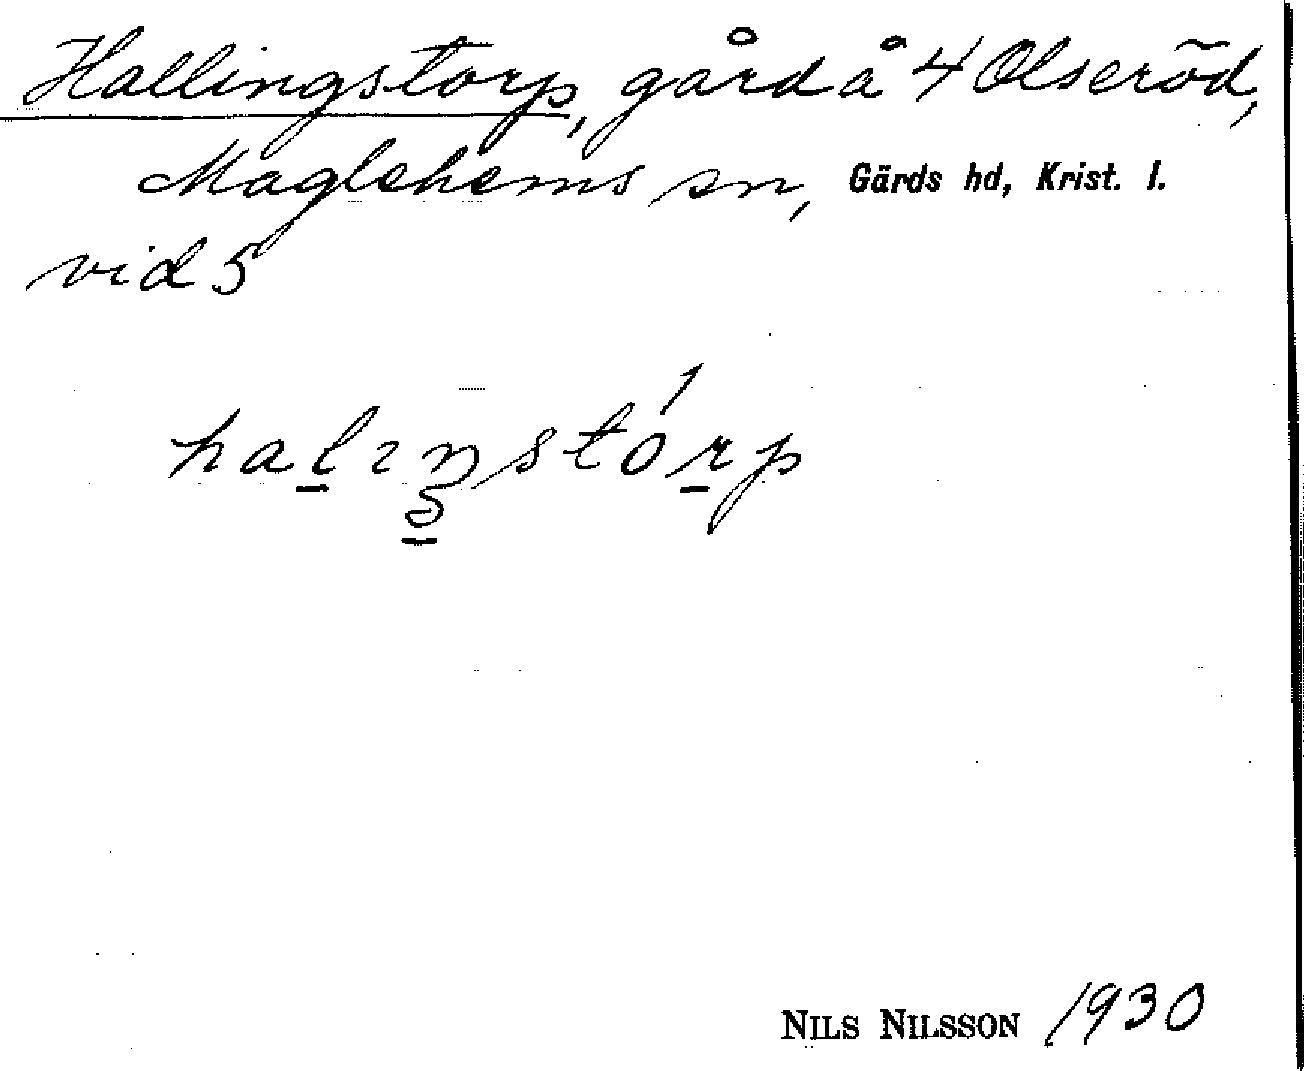 Hallingstorp, gård å 4 Olseröd,
Maglehems sn, Gärds hd, Krist. l.
vid 5
halıŋstórp
NILS NILSSON 1930